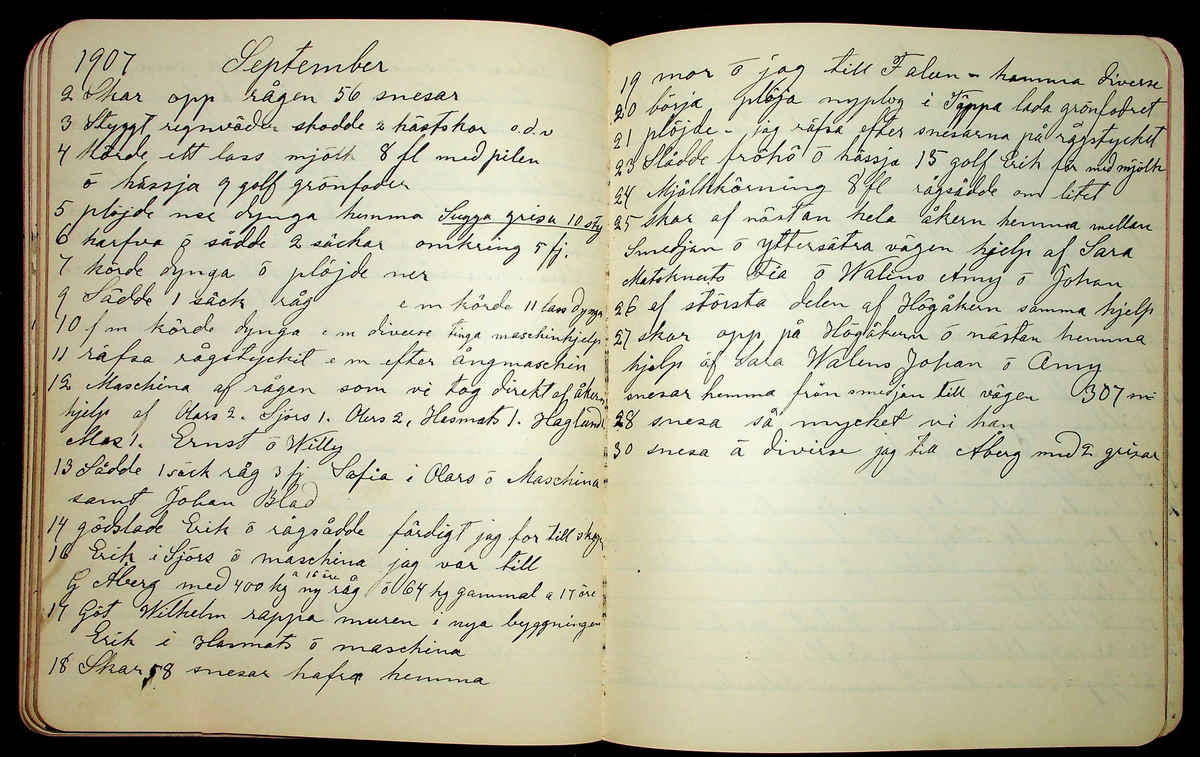 1907 September
2 Skar opp rågen 56 snesar
3 Styggt regnväder skodde 2 hästskor o.d.v
4 körde ett lass mjölk 8 fl med pilen
ö hässja 9 golf grönfoder
5 plöjde ner dynga hemma Sugga grisa 10 sty
6 harfva ö sådde 2 säckar omkring 5 fj.
7 körde dynga ö plöjde ner
9 Sådde 1 säck råg e m körde 11 lass dynga
10 f m körde dynga e m diverse tinga maschinhjelp
11 räfsa rågstyckit e m efter ångmaschin
12 Maschina af rågen som vi tog direkt af åkern
hjelp af Olars 2. Sjörs 1. Olers 2, Hasmats 1. Haglund
Mas 1. Ernst ö Willy
13 Sådde 1 säck råg 3 fj Sofia i Olars ö Maschina
samt Johan Blad
14 gödslade Erik ö rågsådde färdigt jag for till
16 Erik i Sjörs ö maschina jag var till
G Åberg med 400 kg ny råg a 16 öre ö 64 kg gammal a 17 öre
17 Göt Wilhelm rappa muren i nya byggningen
Erik i Hasmats ö maschina
18 Skar 58 snesar hafra hemma
19 mor ö jag till Falun - hamma diverse
20 börja plöja nyplog i Täppa lada grönfodret
21 plöjde - jag räfsa efter snesarna på rågstycket
23 Slådde fröhö ö hässja 15 golf Erik for med mjölk
24 Mjölkkörning 8 fl rågsådde om litet
25 skar af nästan hela åkern hemma mellan
Smedjan ö yttersätra vägen hjelp af Sara
Matsknuts Fia ö Walens Amy ö Johan
26 af största delen af Högåkern samma hjelp
27 skar opp på Högåkern ö nästan hemma
hjelp af Sara Walens Johan ö Amy
snesar hemma från smedjan till vägen 307
28 snesa så mycket vi han
30 snesa ä diverse jag till Åberg med 2 grisar